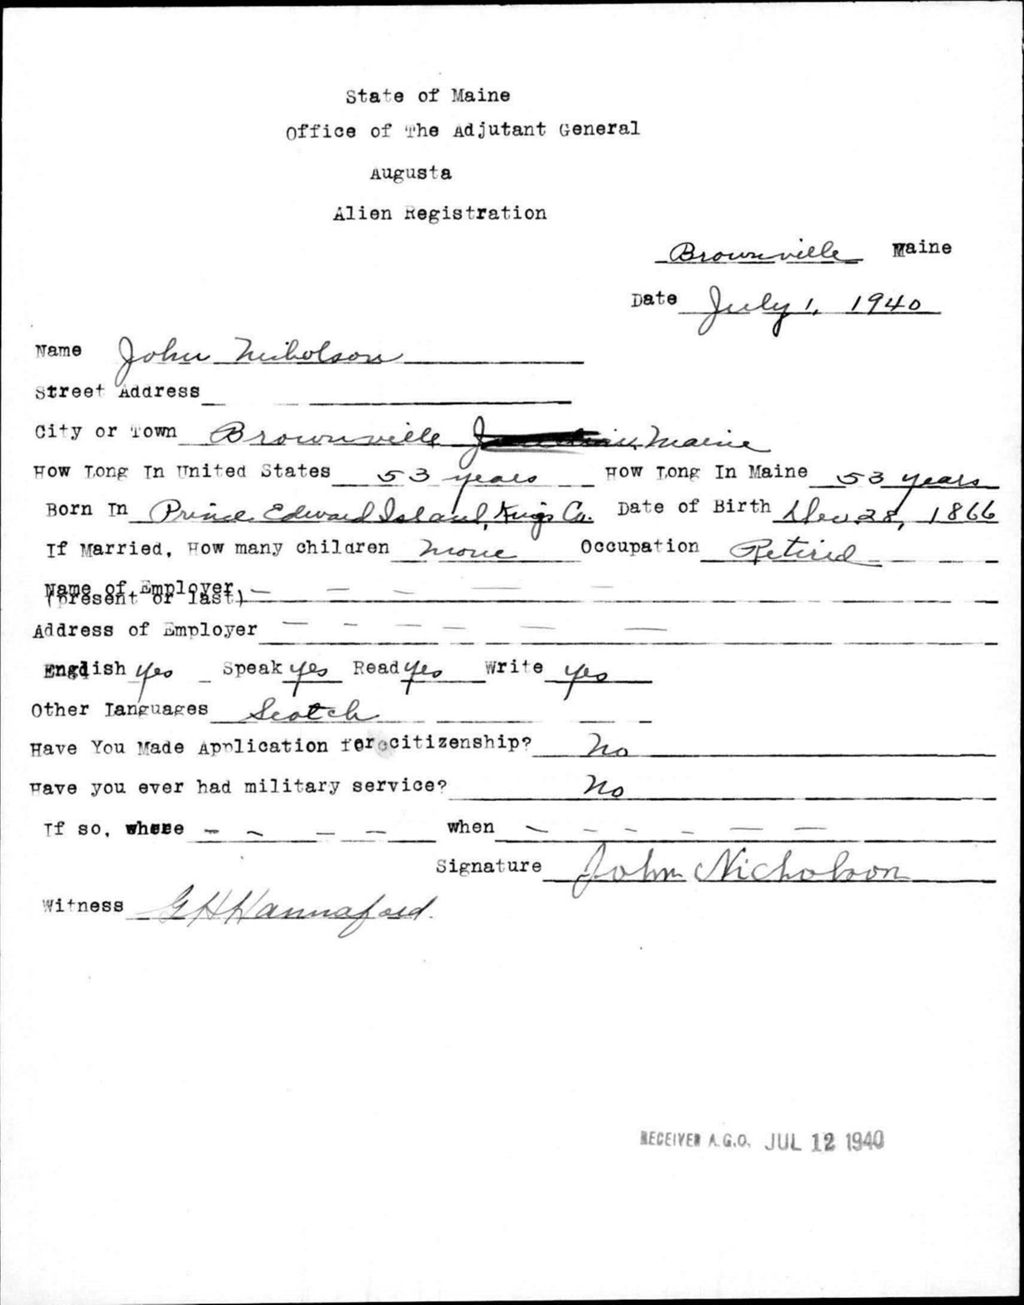 State of Maine
Office of The Adjutant General
Augusta
Alien Registration
Brownville Maine
Date July 1, 1940
Name John Nicholson
Street Address
City or Town Brownville Maine
How Long In United States 53 years How Long In Maine 53 years
Born In Prince Edward Island, Kings Co. Date of Birth Dec 28, 1866
If Married, How many children None Occupation Retired
Name of Employer
(present or last)
Address of Employer
English yes Speak yes Read yes Write yes
Other Languages Scotch
Have You Made Application for citizenship? No
Have you ever had military service? No
If so, where - - - - when - - - - - -
Signature John Nicholson
Witness G H Hannaford.
RECEIVED A.G.O. JUL 12 1940